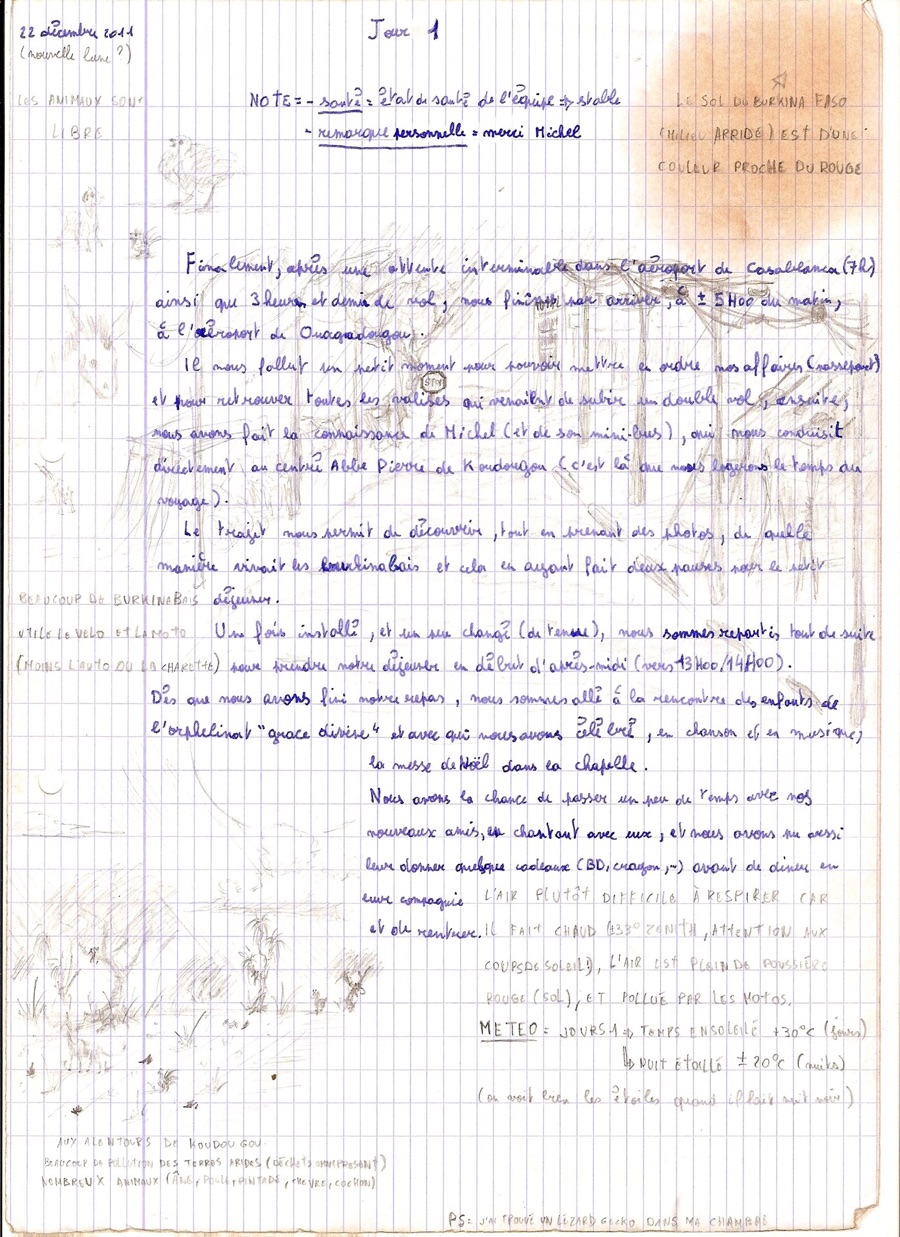 22 décembre 2011
(nouvelle lune ?)
Jour 1
LES ANIMAUX SONT
LIBRE
NOTE = - santé = état de santé de l'équipe => stable
- remarque personnelle = merci Michel
LE SOL DU BURKINA FASO
(MILIEU ARRIDE) EST D'UNE
COULEUR PROCHE DU ROUGE
Finalement, après une attente interminable dans l'aéroport de Casablanca (7h)
ainsi que 3 heures et demi de vol, nous finîmes par arriver, à ± 5H00 du matin,
à l'aéroport de Ouagadougou.
Il nous fallut un petit moment pour pouvoir mettre en ordre nos affaires (passeport)
et pour retrouver toutes les valises qui venaient de subir un double vol, ensuite,
STOP
nous avons fait la connaissance de Michel (et de son mini-bus), qui nous conduisit
directement au centre Abbé Pierre de Koudougou (c'est là que nous logerons le temps du
voyage).
Le trajet nous permit de découvrir, tout en prenant des photos, de quelle
manière vivait les burkinabais et cela en ayant fait deux pauses pour le petit
déjeuner.
BEAUCOUP DE BURKINABAIS
UTILE LE VELO ET LA MOTO
(MOINS L'AUTO OU LA CHARETTE)
Une fois installé, et un peu changé (de tenue), nous sommes repartis tout de suite
pour prendre notre déjeuner en début d'après-midi (vers 13H00/14H00).
Dès que nous avons fini notre repas, nous sommes allé à la rencontre des enfants de
l'orphelinat "grace divine" et avec qui nous avons célébré, en chanson et en musique,
la messe de Noël dans la chapelle.
Nous avons la chance de passer un peu de temps avec nos
nouveaux amis, en chantant avec eux, et nous avons pu aussi
leur donner quelque cadeaux (BD, crayon, ~) avant de diner en
leur compagnie
et de rentrer.
L'AIR PLUTÔT DIFFICILE À RESPIRER CAR
IL FAIT CHAUD (±33° ZENITH, ATTENTION AUX
COUPS DE SOLEIL!), L'AIR EST PLEIN DE POUSSIÈRE
ROUGE (SOL), ET POLLUÉ PAR LES MOTOS.
METEO = JOURS 1 => TEMPS ENSOLEILÉ +30°C (jours)
NUIT ÉTOILLÉ ± 20°C (nuits)
(on voit bien les étoiles quand il fait nuit noir)
AUX ALENTOURS DE KOUDOUGOU
BEAUCOUP DE POLLUTION DES TERRES ARIDES (DÉCHETS OMNIPRESENT)
NOMBREUX ANIMAUX (ÂNE, POULE, PINTADE, CHEVRE, COCHON)
PS = J'AI TROUVÉ UN LÉZARD GECKO DANS MA CHAMBRE